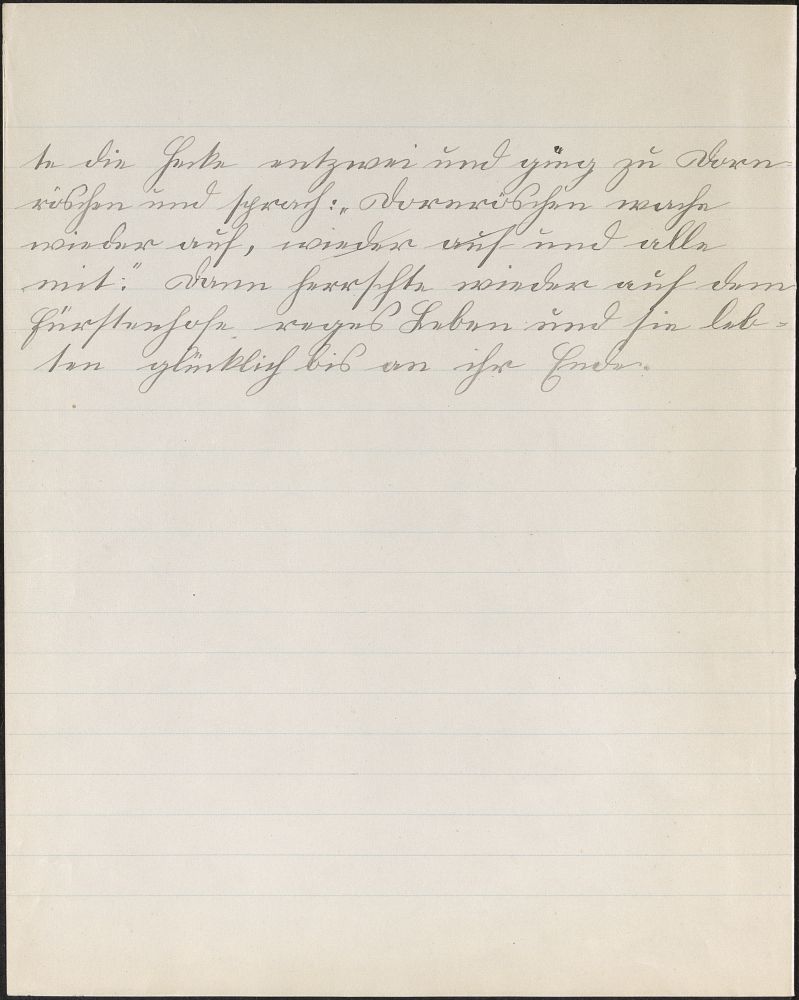 te die Hecke entzwei und ging zu Dorn-
röschen und sprach: „Dornröschen wache
wieder auf, wieder auf und alle
mit.“ Dann herrschte wieder auf dem
Fürstenhofe reges Leben und sie leb-
ten glücklich bis an ihr Ende.